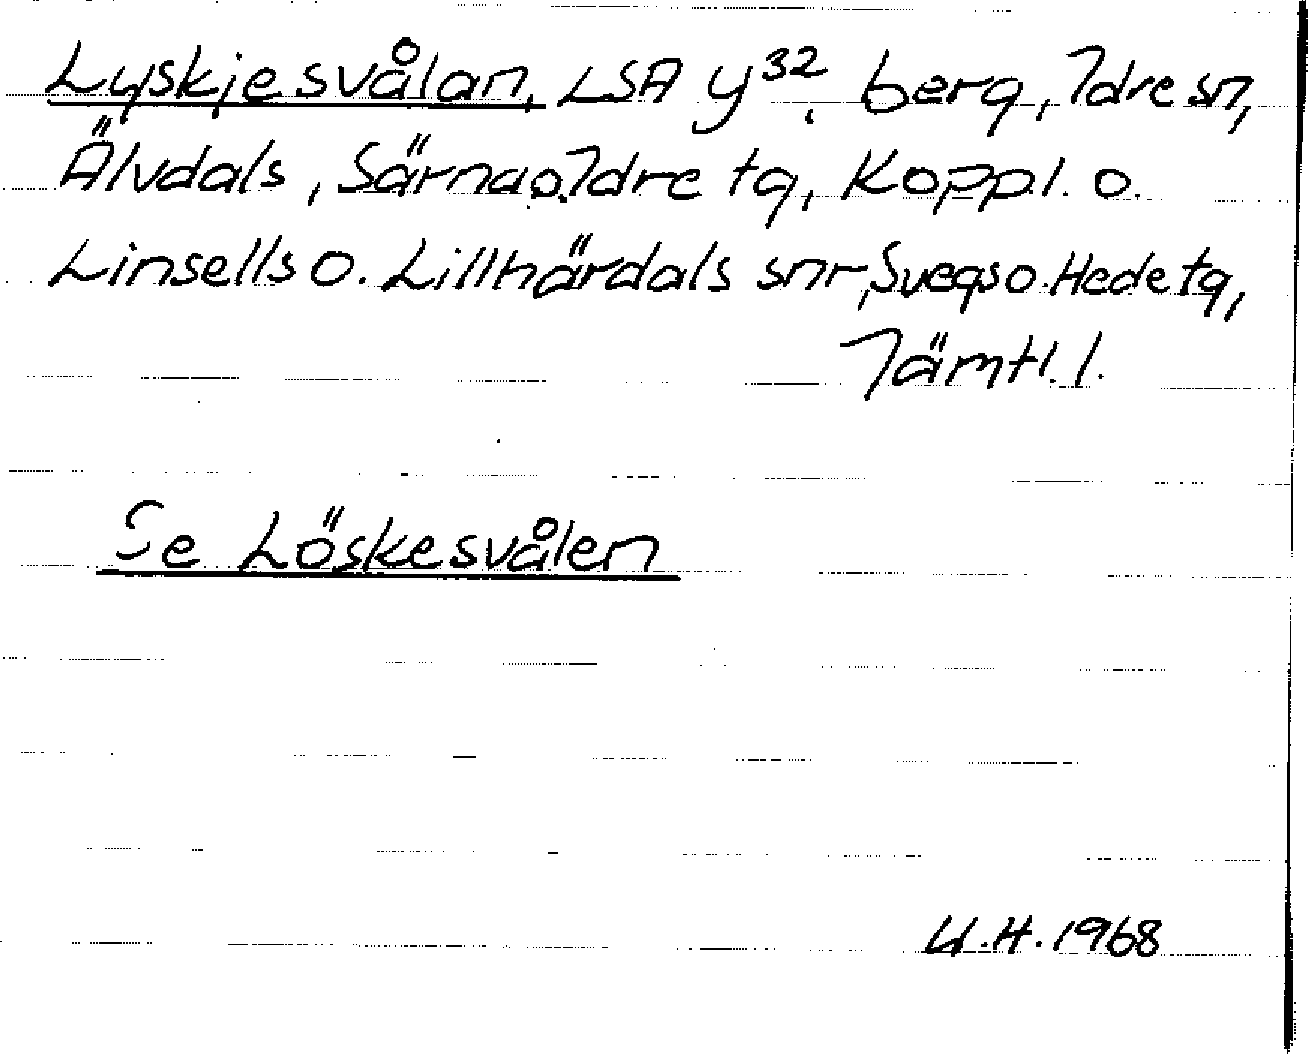 Lyskjesvålan, LSA y³², berg, Idre sn,
Älvdals, Särna o. Idre tg, Kopp.l. o.
Linsells o. Lillhärdals snr, Svegs o. Hede tg,
Jämtl. l.
Se Löskesvålen
U.H. 1968